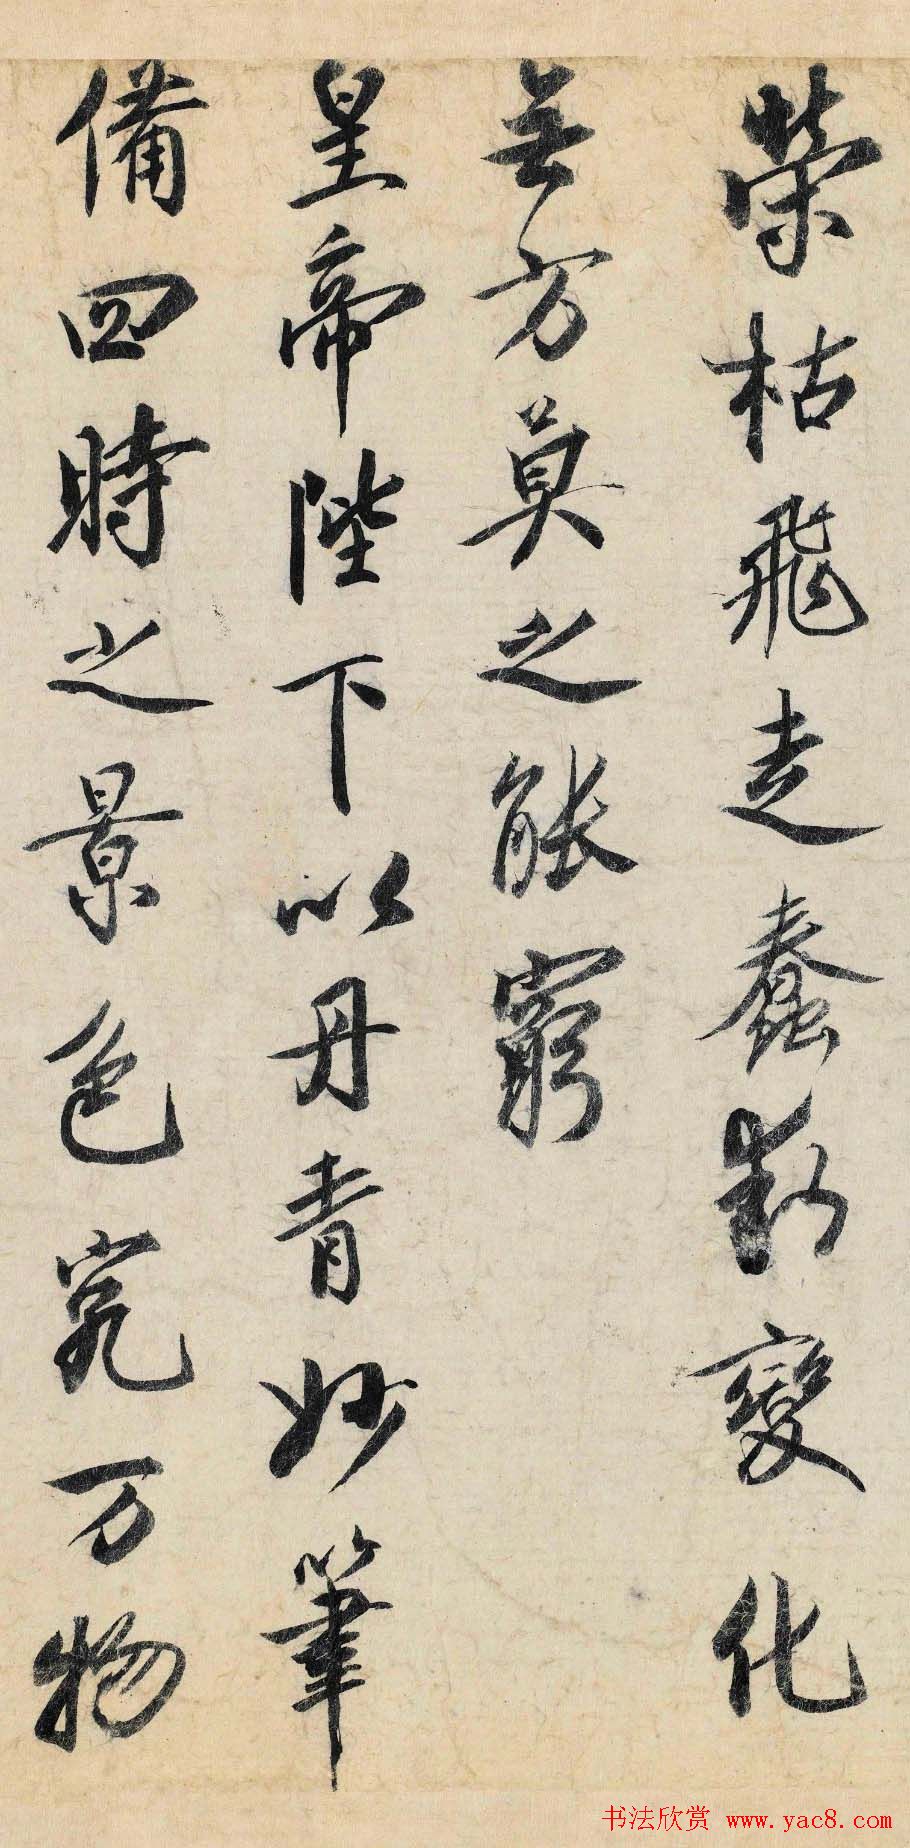 榮枯飛走蠢動變化
無方莫之能窮
皇帝陛下以丹青妙筆
備四時之景色究万物
书法欣赏 www.yac8.com